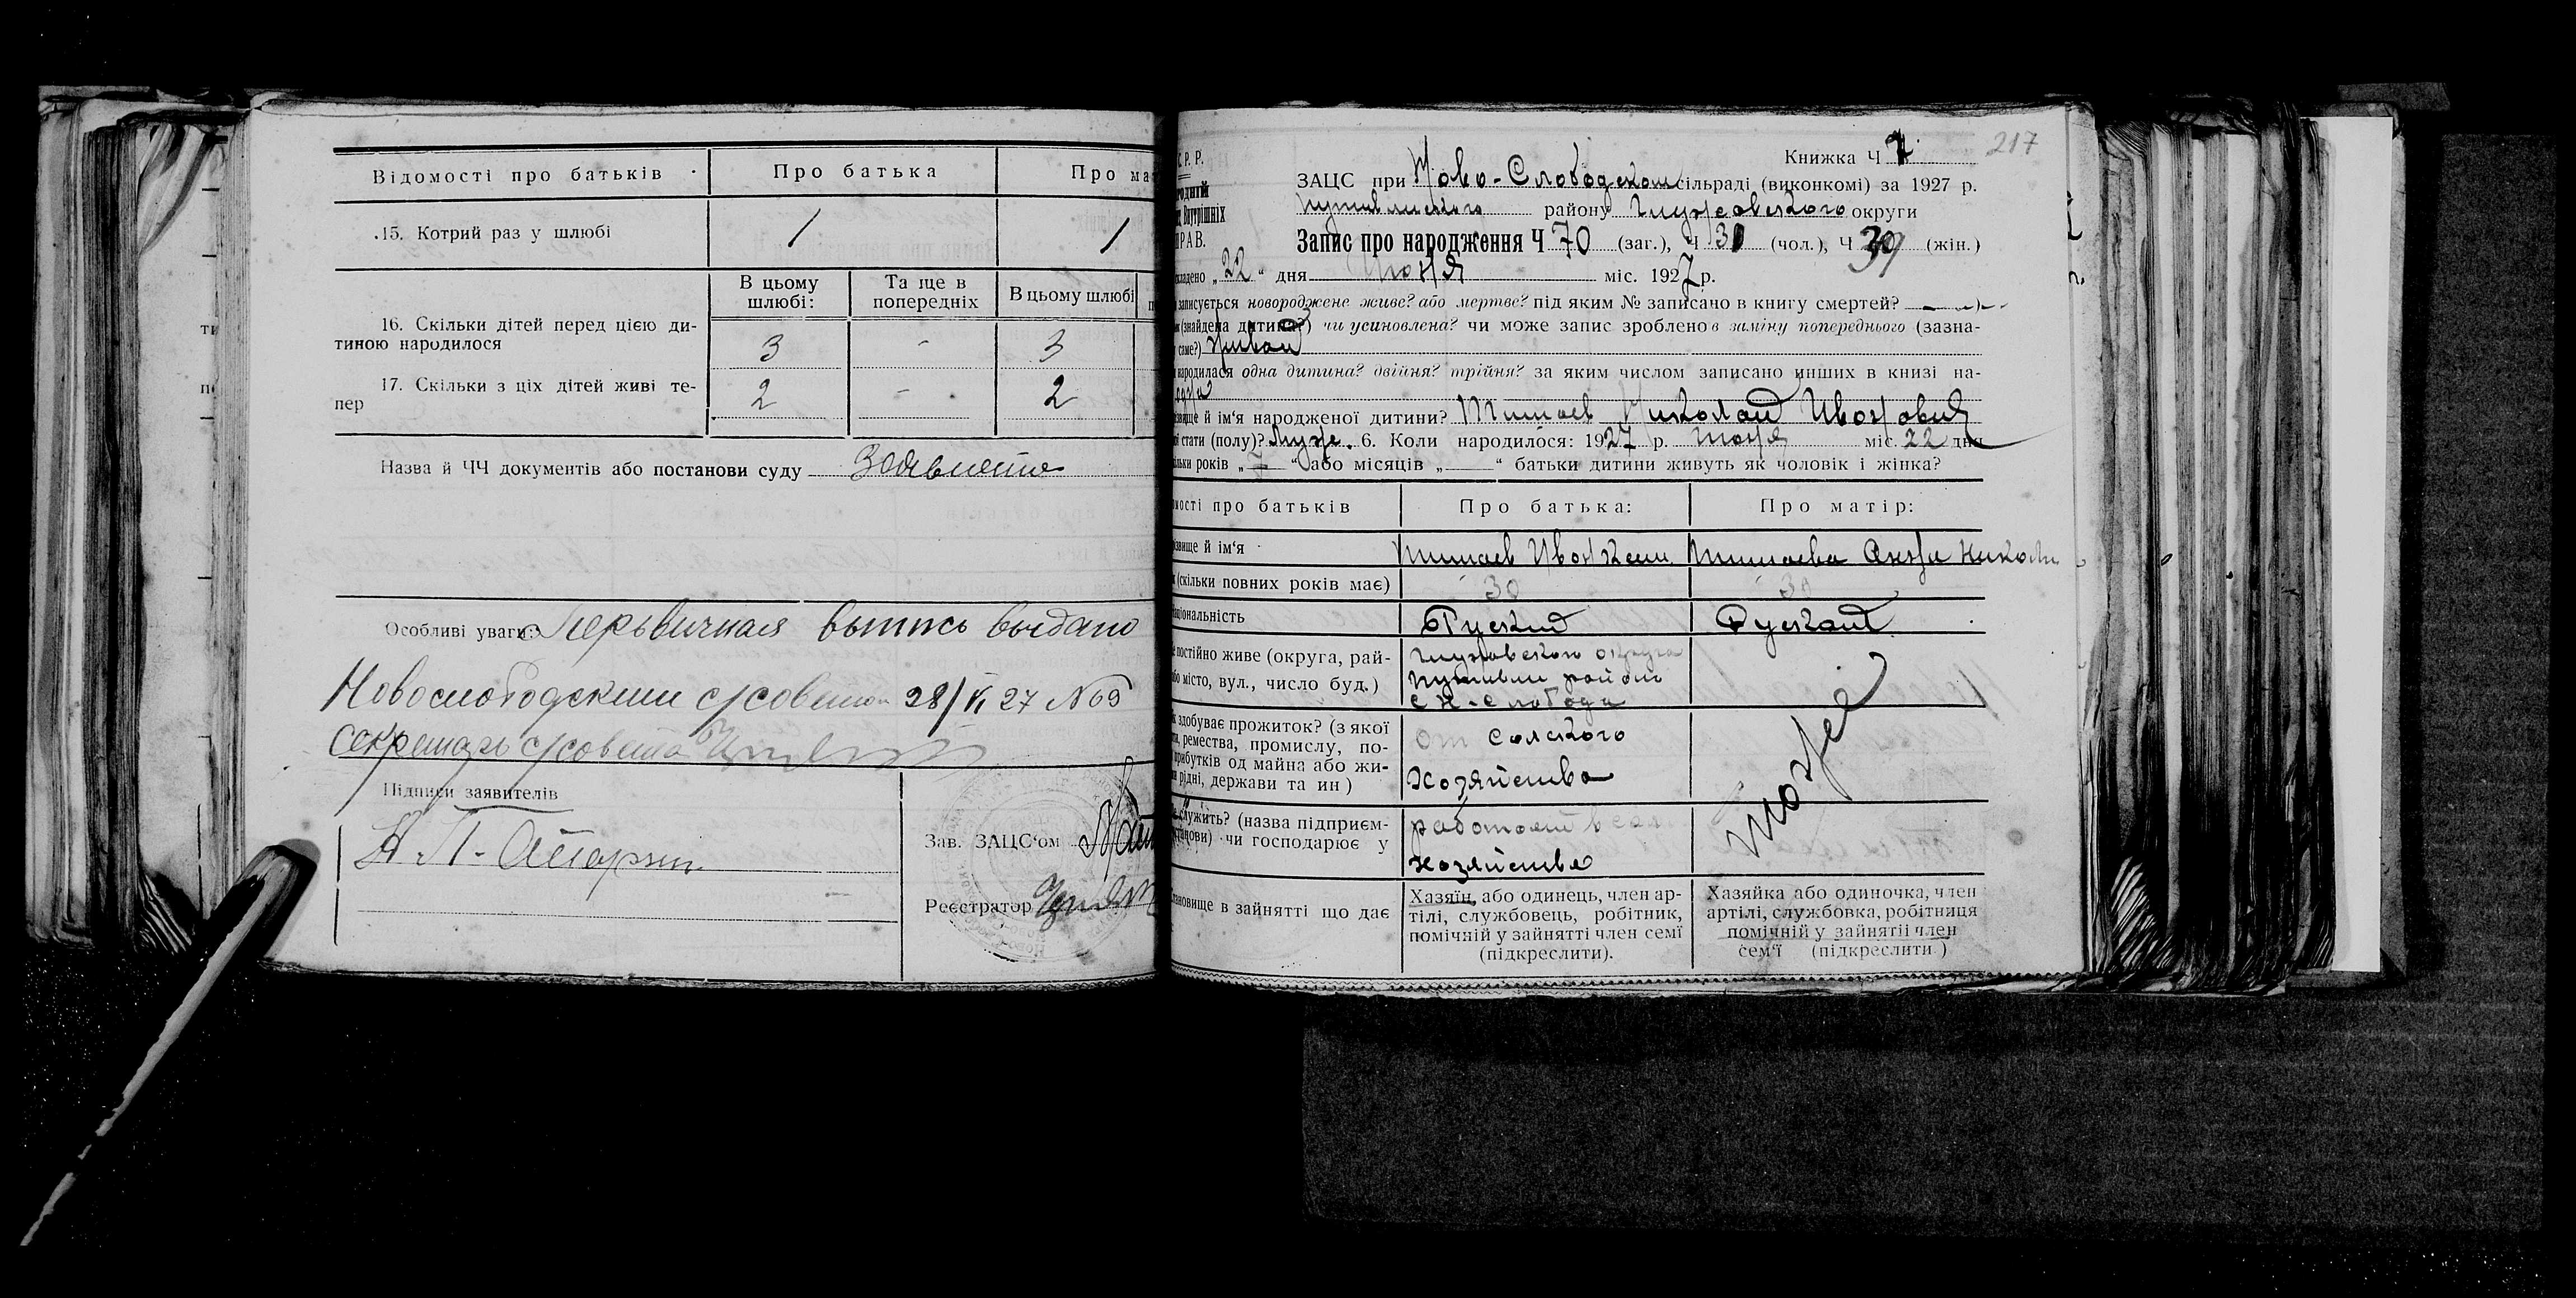 Відомості про батьків
Про батька
Про ма
15. Котрий раз у шлюбі
1
1
В цьому шлюбі:
Та ще в попередніх
В цьому шлюбі
16. Скільки дітей перед цією ди-
тиною народилося
3
-
3
17. Скільки з ціх дітей живі те-
пер
2
-
2
Назва й ЧЧ документів або постанови суду
Особливі уваги: Перьвичная выпись выдано
Новослободским с/советом 28/VI 27 №69
Секретарь с/совета
Підписи заявителів
Зав. ЗАЦС'ом
Реєстратор
217
Книжка Ч
С.Р.Р.
ЗАЦС при Ново-Слободском сільраді (виконкомі) за 1927 р.
Внутрішніх
ПРАВ.
Путивльского району Глуховского округи
Запис про народження Ч 70 (заг.), Ч 31 (чол.), Ч 39 (жін.)
складено „22“ дня Июня міс. 1927 р.
записується новороджене живе? або мертве? під яким № записано в книгу смертей?
(знайдена дитина?) чи усиновлена? чи може запис зроблено в заміну попереднього (зазна-
саме?) живой
народилася одна дитина? двійня? трійня? за яким числом записано инших в книзі на-
одна
й ім'я народженої дитини? Николай Иванович
стати (полу)? Муж. 6. Коли народилося: 1927 р. июня міс. 22 дня
років „ “ або місяців „ “ батьки дитини живуть як чоловік і жінка?
мості про батьків
Про батька:
Про матір:
звище й ім'я
(скільки повних років має)
30
30
Національність
Руский
Руская
постійно живе (округа, рай-
або місто, вул., число буд.)
Глуховского округа
Путивль район
с Н-Слобода
здобуває прожиток? (з якої
ремества, промислу, по-
прибутків од майна або жи-
рідні, держави та ин)
от сельского
хозяйства
служить? (назва підприєм-
чи господарює у
работает в сел
хозяйстве
тоже
становище в зайнятті що дає
Хазяїн, або одинець, член ар-
тілі, службовець, робітник,
помічній у зайнятті член семї
(підкреслити).
Хазяйка або одиночка, член
артілі, службовка, робітниця
помічній у зайнятіі член
сем'ї (підкреслити)